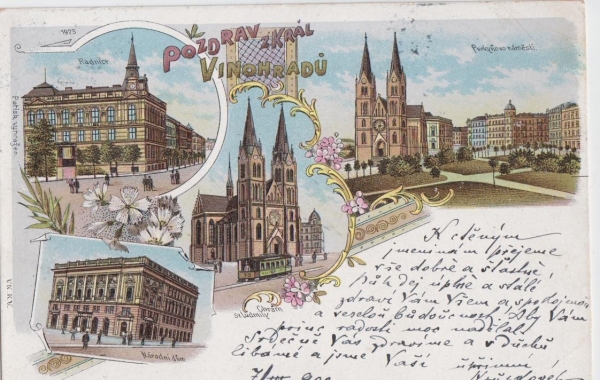 1923
POZDRAV Z KRÁL
VINOHRADŮ
Radnice
Purkyňovo náměstí.
Chrám
sv. Ludmily
Národní dům
K ctěným
jmeninám přejeme
vše dobré a šťastné,
Bůh dej úplné a stálé
zdraví Vám Všem a spokojenou
a veselou budoucnost. Aby Vám
radosti moc nadělal
Srdečně Vás Zdravíme a v duchu
líbáme a jsme Vaši upřímní